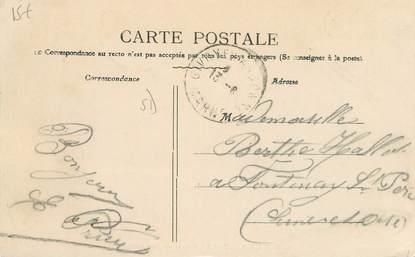 15€
CARTE POSTALE
La Correspondance au recto n'est pas acceptée par tous les pays étrangers (Se renseigner à la poste)
Correspondance
Adresse
Mademoiselle
Berthe
à Fontenay St Père
(Seine et Oise)
Bonjour
de